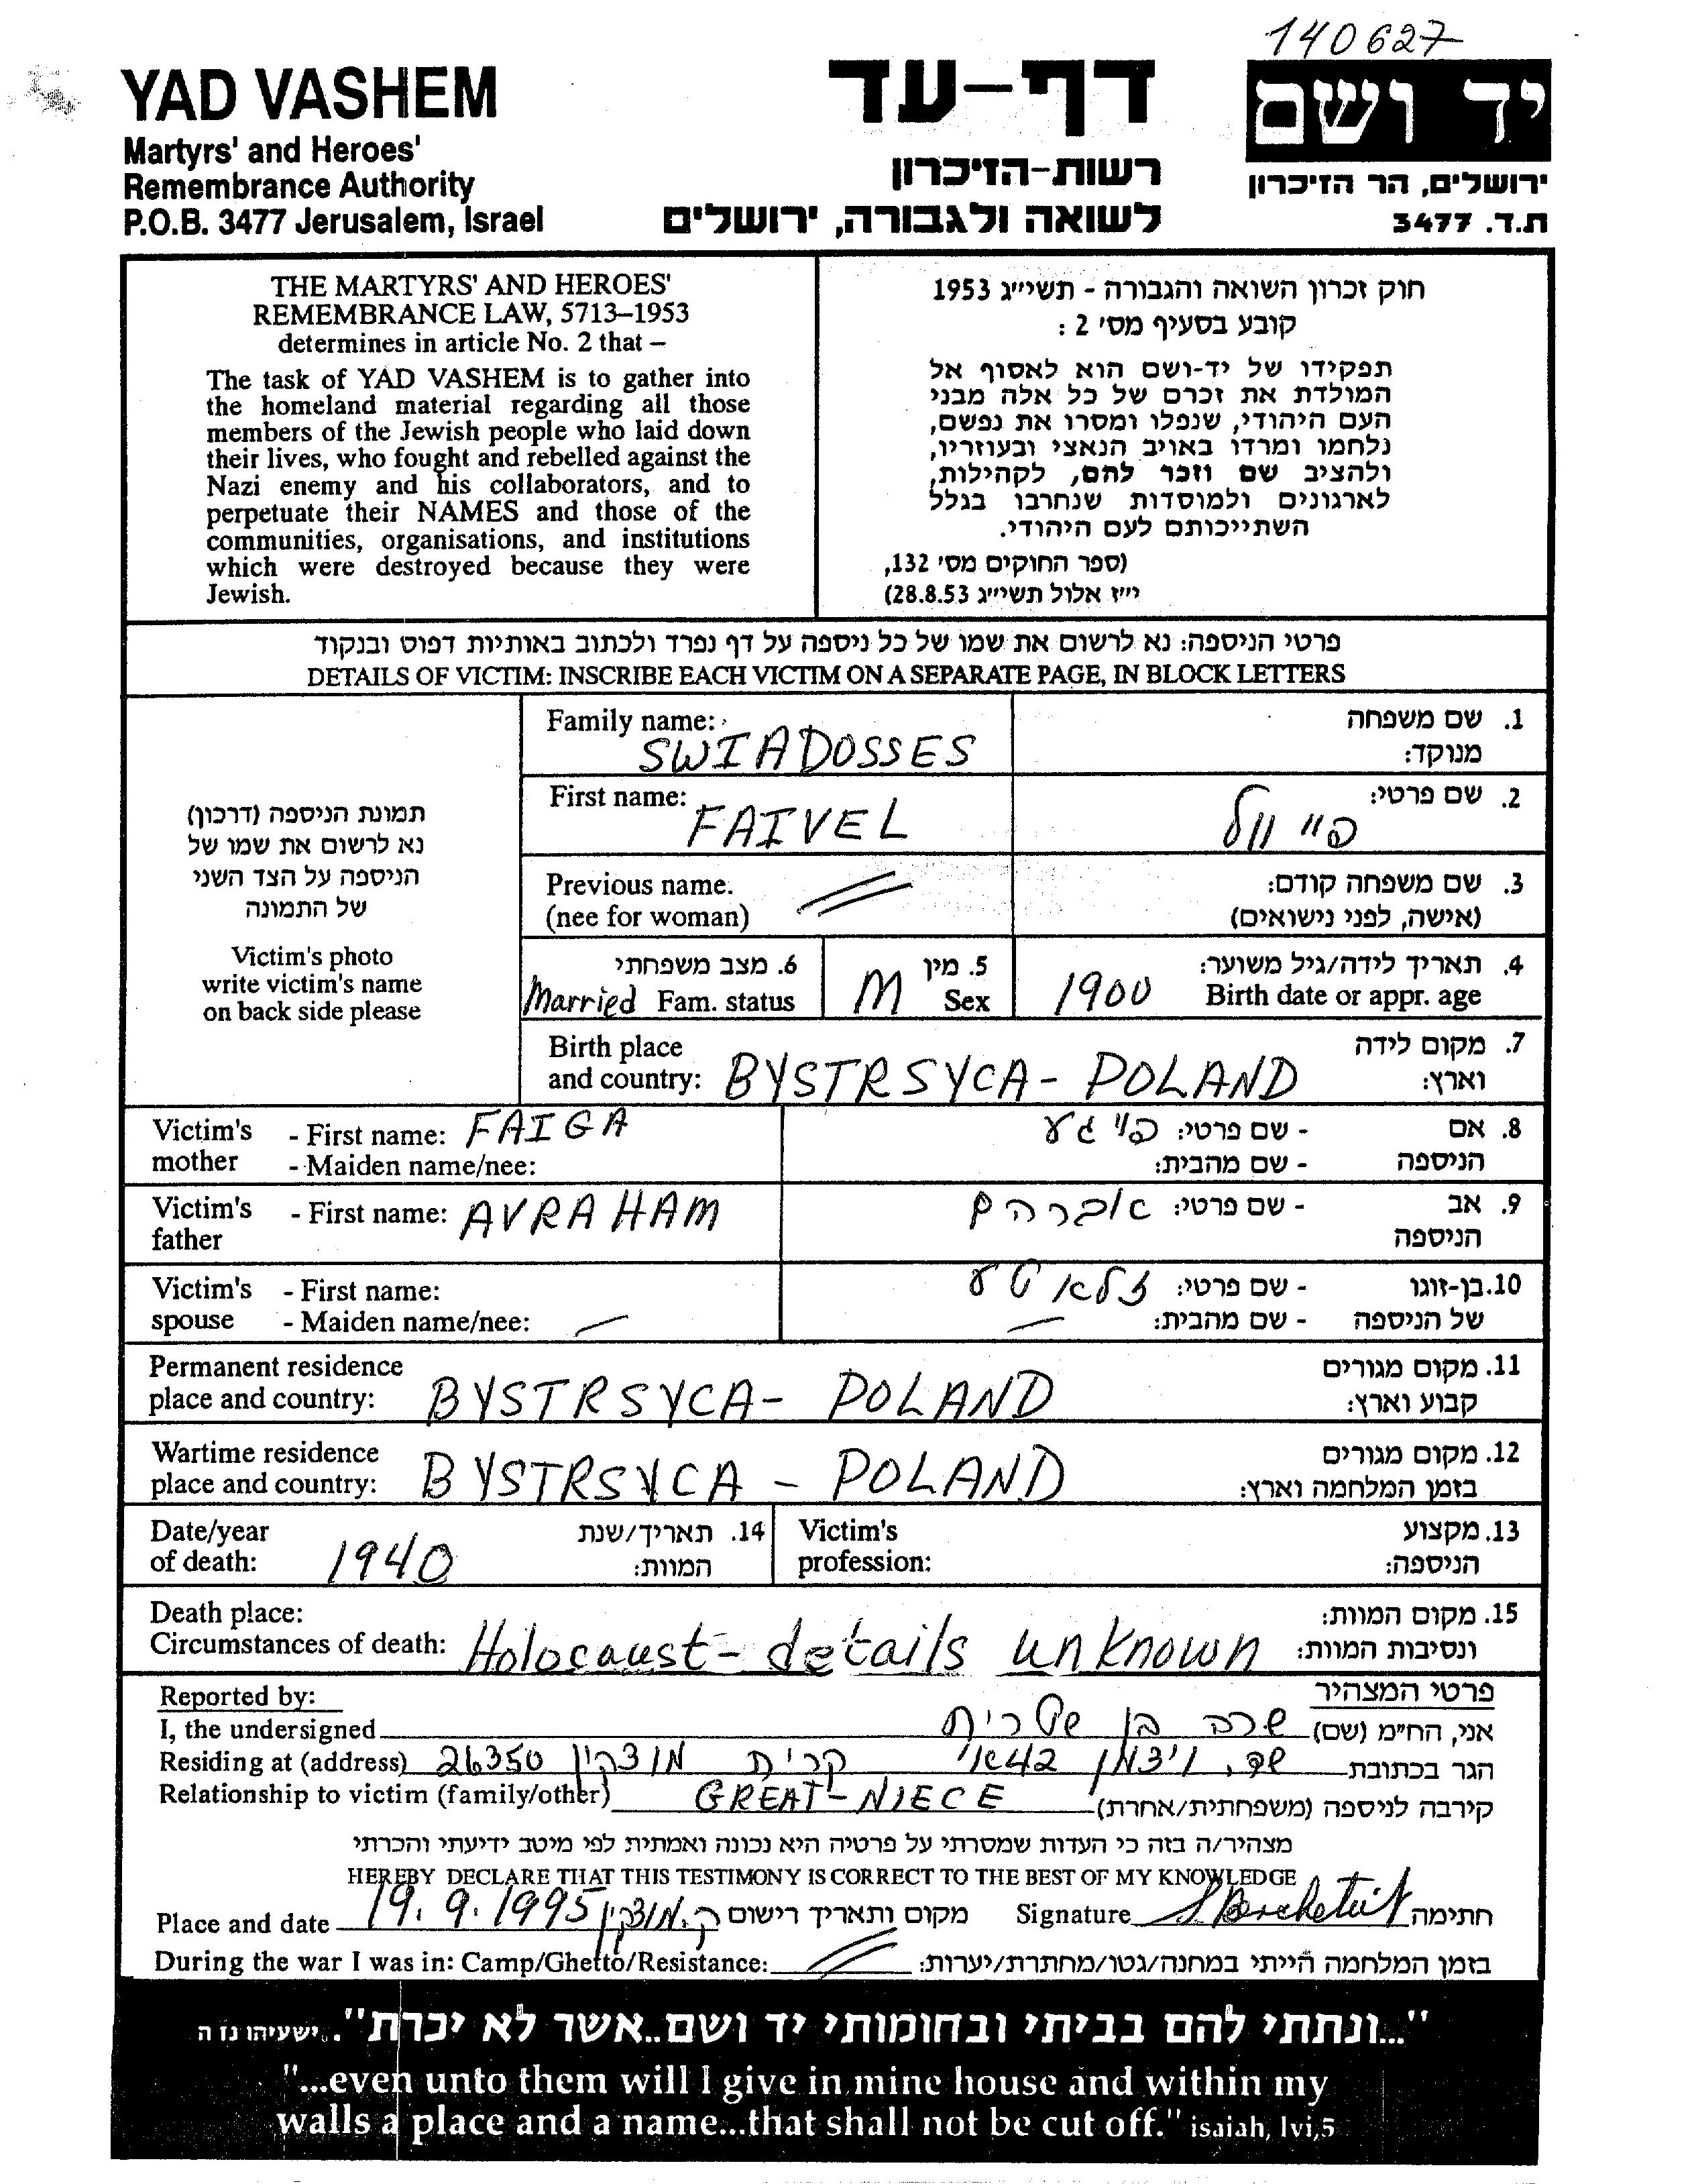 140627
YAD VASHEM
Martyrs' and Heroes'
Remembrance Authority
P.O.B. 3477 Jerusalem, Israel
דף-עד
רשות-הזיכרון
לשואה ולגבורה, ירושלים
יד ושם
ירושלים, הר הזיכרון
ת.ד. 3477
THE MARTYRS' AND HEROES'
REMEMBRANCE LAW, 5713–1953
determines in article No. 2 that –
The task of YAD VASHEM is to gather into
the homeland material regarding all those
members of the Jewish people who laid down
their lives, who fought and rebelled against the
Nazi enemy and his collaborators, and to
perpetuate their NAMES and those of the
communities, organisations, and institutions
which were destroyed because they were
Jewish.
חוק זכרון השואה והגבורה - תשי״ג 1953
קובע בסעיף מס׳ 2 :
תפקידו של יד-ושם הוא לאסוף אל
המולדת את זכרם של כל אלה מבני
העם היהודי, שנפלו ומסרו את נפשם,
נלחמו ומרדו באויב הנאצי ובעוזריו,
ולהציב שם וזכר להם, לקהילות,
לארגונים ולמוסדות שנחרבו בגלל
השתייכותם לעם היהודי.
(ספר החוקים מס׳ 132,
י״ז אלול תשי״ג 28.8.53)
פרטי הניספה: נא לרשום את שמו של כל ניספה על דף נפרד ולכתוב באותיות דפוס ובנקוד
DETAILS OF VICTIM: INSCRIBE EACH VICTIM ON A SEPARATE PAGE, IN BLOCK LETTERS
תמונת הניספה (דרכון)
נא לרשום את שמו של
הניספה על הצד השני
של התמונה
Victim's photo
write victim's name
on back side please
Family name: SWIADOSSES
1. שם משפחה
מנוקד:
First name: FAIVEL
2. שם פרטי: פייוול
Previous name.
(nee for woman)
3. שם משפחה קודם:
(אישה, לפני נישואים)
6. מצב משפחתי
Married Fam. status
5. מין
M Sex
4. תאריך לידה/גיל משוער:
1900 Birth date or appr. age
Birth place
and country: BYSTRSYCA - POLAND
7. מקום לידה
וארץ:
Victim's mother - First name: FAIGA
- Maiden name/nee:
8. אם הניספה - שם פרטי: פייגע
- שם מהבית:
Victim's father - First name: AVRAHAM
9. אב הניספה - שם פרטי: אברהם
Victim's spouse - First name:
- Maiden name/nee: —
10. בן-זוגו של הניספה - שם פרטי: זלאטע
- שם מהבית: —
Permanent residence
place and country: BYSTRSYCA - POLAND
11. מקום מגורים
קבוע וארץ:
Wartime residence
place and country: BYSTRSYCA - POLAND
12. מקום מגורים
בזמן המלחמה וארץ:
Date/year
of death: 1940
14. תאריך/שנת
המוות:
Victim's
profession:
13. מקצוע
הניספה:
Death place:
Circumstances of death: Holocaust - details unknown
15. מקום המוות:
ונסיבות המוות:
Reported by:
פרטי המצהיר
I, the undersigned שרה בן שטרית אני, הח״מ (שם)
Residing at (address) שד. ויצמן 42א קרית מוצקין 26350 הגר בכתובת
Relationship to victim (family/other) GREAT-NIECE קירבה לניספה (משפחתית/אחרת)
מצהיר/ה בזה כי העדות שמסרתי על פרטיה היא נכונה ואמתית לפי מיטב ידיעתי והכרתי
HEREBY DECLARE THAT THIS TESTIMONY IS CORRECT TO THE BEST OF MY KNOWLEDGE
Place and date 19.9.1995 ק.מוצקין מקום ותאריך רישום Signature חתימה
During the war I was in: Camp/Ghetto/Resistance: בזמן המלחמה הייתי במחנה/גטו/מחתרת/יערות:
"...ונתתי להם בביתי ובחומותי יד ושם..אשר לא יכרת". ישעיהו נו ה
"...even unto them will I give in mine house and within my
walls a place and a name...that shall not be cut off." isaiah, lvi,5